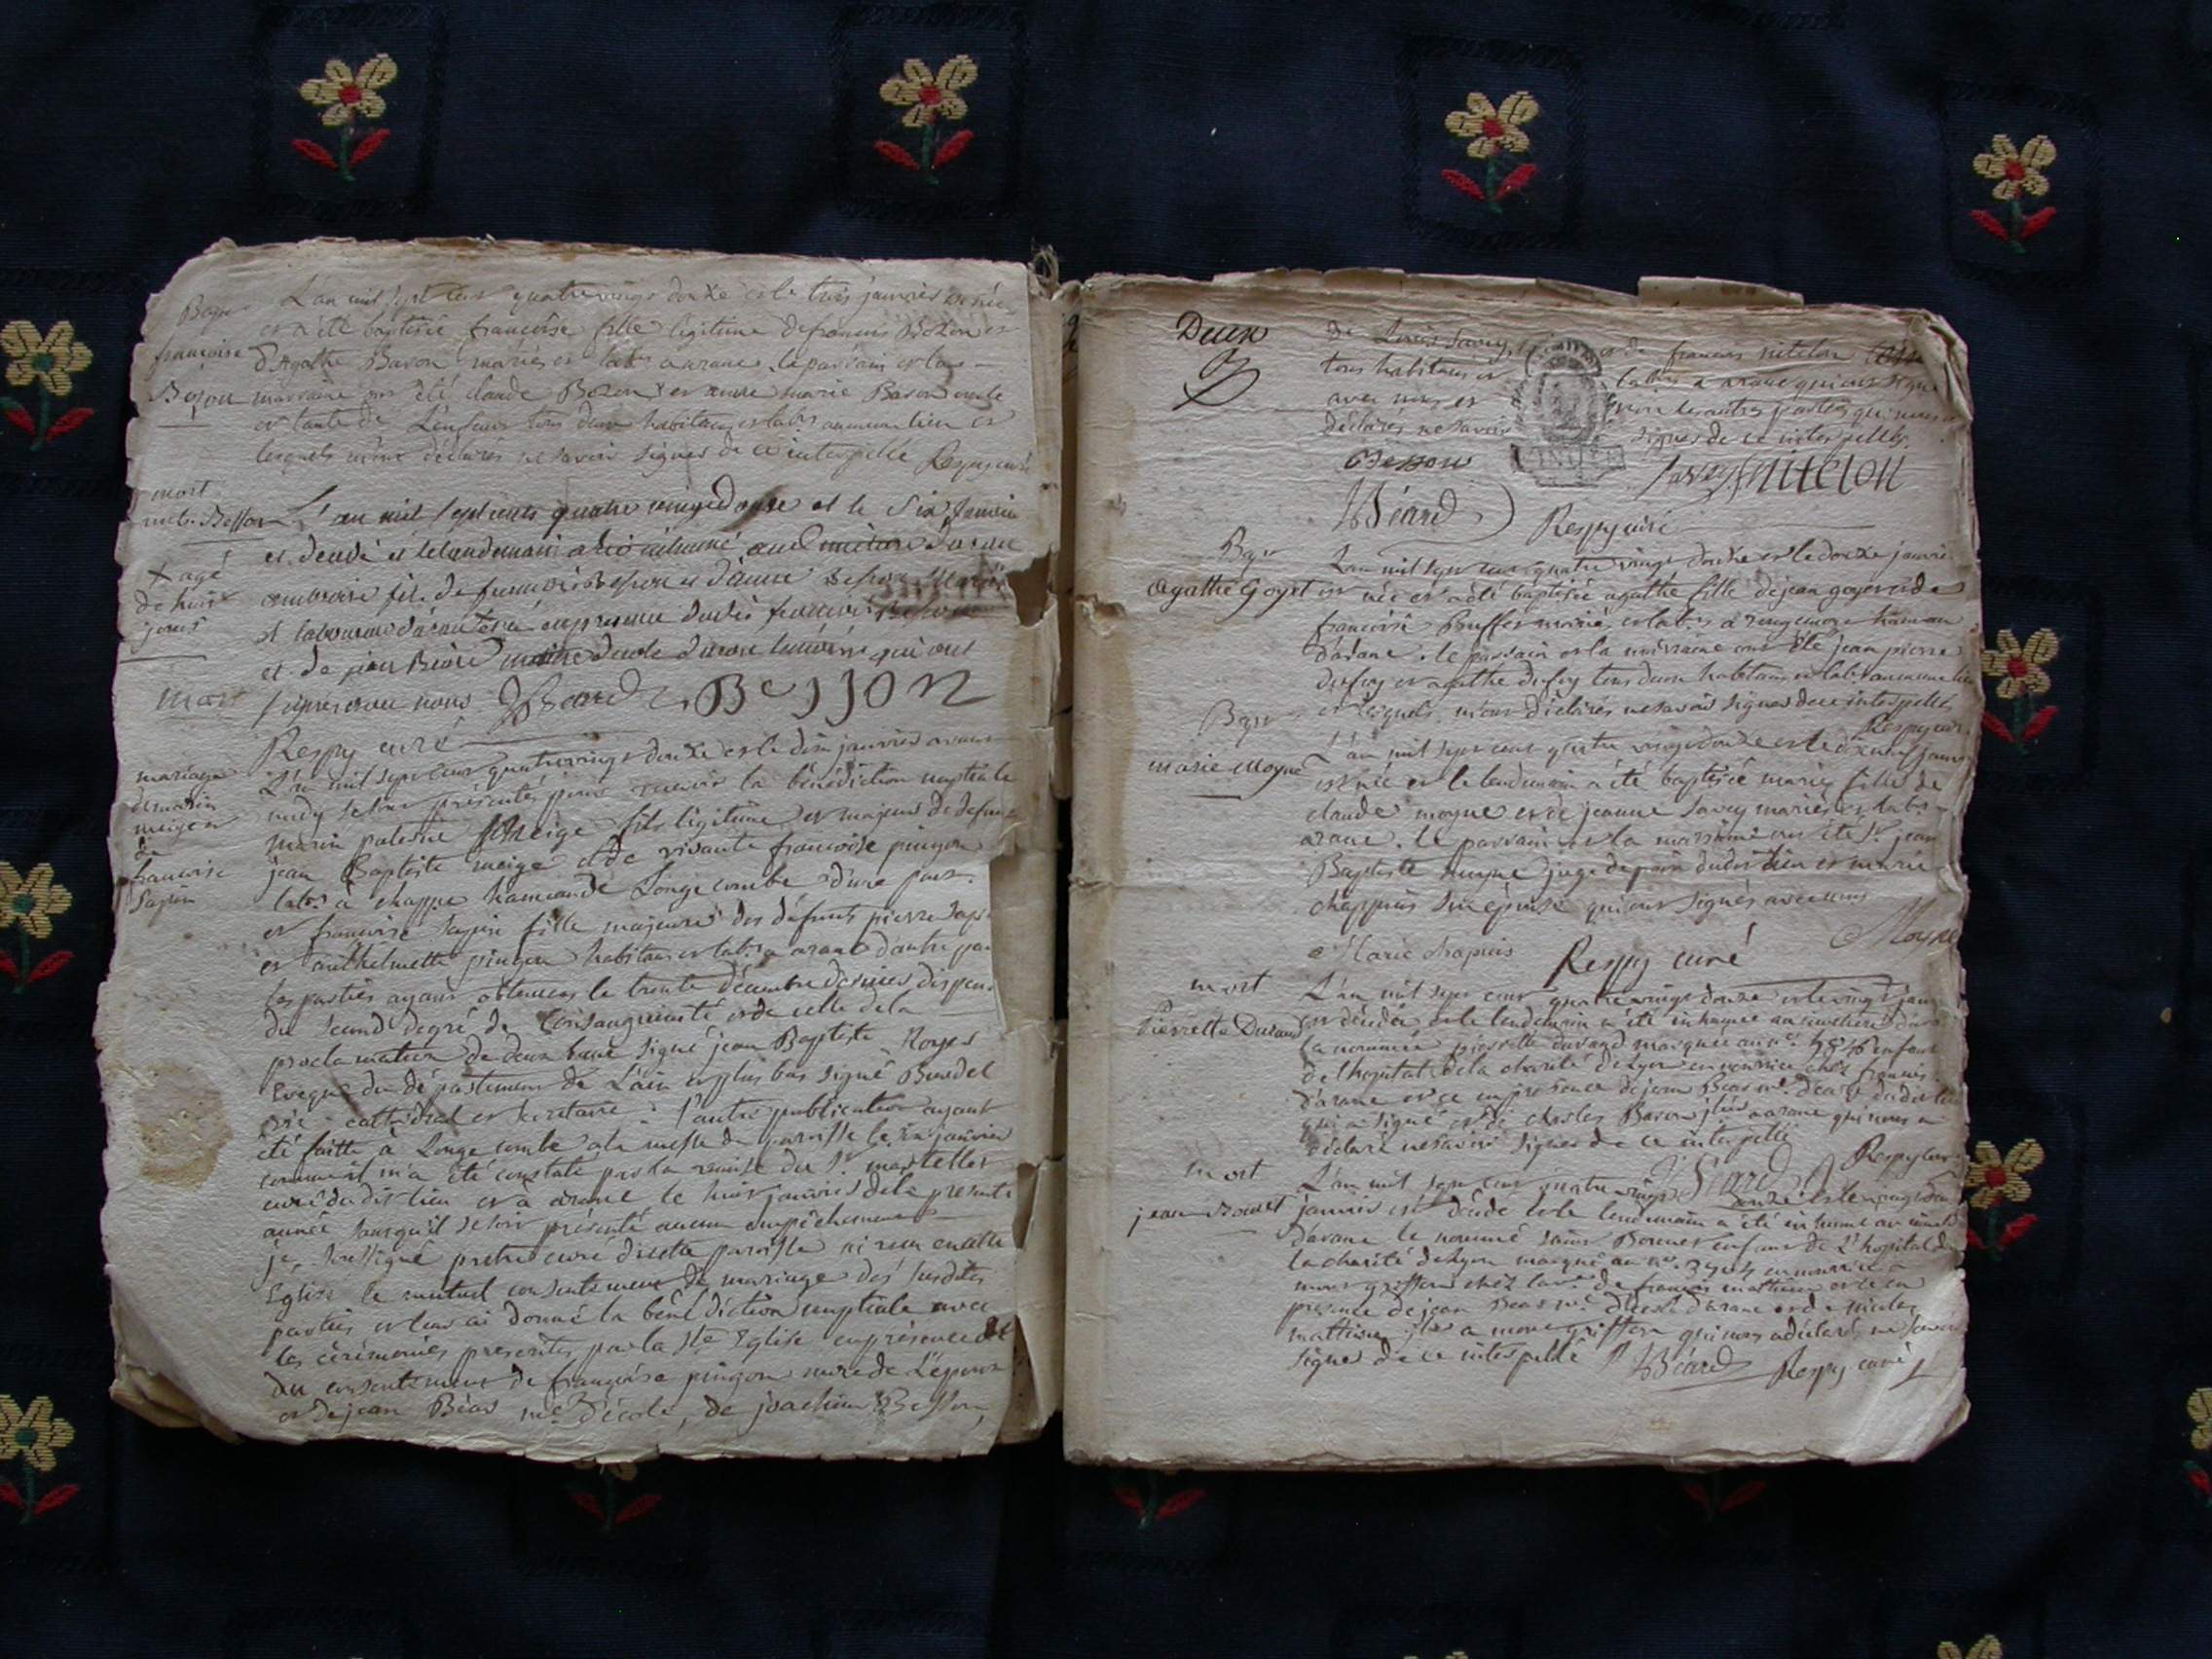 Bapt
françoise
Bozon
L'an mil sept cent quatre vingt douze et le trois janvier est née
et a été baptisée françoise fille légitime de francois Bozon et
d'Agathe Baron mariés et labrs a arane. le parrain et la
marraine ont été claude Bozon et anne marie Baron oncle
et tante de L'enfant tous deux habitans et labrs au meme lieu et
lesquels m'ont déclarés ne savoir signer de ce interpellé Respy curé
mort
Besson
L'an mil sept cents quatre vingt douze et le Six janvier
et décédé et le lendemain a été inhumé au cimetiere d'arane
+ agé
de huit
jours
ambroise fils de francois Besson et d'anne Besson Mariés
et laboureurs d'arane en presence dudit francois Besson
et de jean Béard maitre d'ecole d'arane temoins qui ont
mort
signés avec nous JBéard BeSSON
Respy curé
mariage
de marin
meige et
de
francoise
Sapin
L'an mil sept cent quatre vingt douze et le dix janvier avant
midy se sont présentés pour recevoir la bénédiction nuptiale
marin meige fils légitime et majeur de defunt
jean Baptiste meige et de vivante francoise pingon
labrs à chappe hameau de Longecombe d'une part
et francoise Sapin fille majeure des défunts pierre Sapin
et anthelmette pingon habitans et labrs a arane d'autre part
les parties ayant obtenues le trente décembre dernier dispense
du second degré de Consanguinité et de celle de la
proclamation de deux bans signé jean Baptiste Royer
Eveque du département de L'ain et plus bas signé Burdel
cathédral et secretaire : l'autre publication ayant
été faitte à Longecombe a la messe de paroisse le six janvier
comme il m'a été constaté par la remise du Sr martellet
curé dudit lieu et a arane le huit janvier de la presente
année sans qu'il se soit présenté aucun empêchement
je soussigné pretre curé de cette paroisse ai recu en cette
Eglise le mutuel consentement de mariage des susdites
parties et leur ai donné la bénédiction nuptiale avec
les cérémonies prescrites par la Ste Eglise en présence et
du consentement de françoise pingon mere de L'epoux
et de jean Béard me d'école, de joachim Besson,
Deux
de Louis Savey, et de francois nitelon
tous habitans et labrs a arane qui ont signé
avec nous et non les autres parties qui nous ont
déclarés ne savoir signer de ce interpellés.
Besson Savey fnitelon
JBéard Respy curé
Bapt
Agathe Goyet
L'an mil sept cent quatre vingt douze et le douze janvier
est née et a été baptisée agathe fille de jean goyet et de
francoise Buffet mariés et labrs à rougemont hameau
d'arane. le parrain et la marraine ont été jean pierre
dufuy et agathe dufuy tous deux habitans et labrs au meme lieu
et lesquels m'ont déclarés ne savoir signer de ce interpellés
Respy curé
Bapt
marie Moyne
L'an mil sept cent quatre vingt douze et le dix neuf janvier
est née et le lendemain a été baptisée marie fille de
claude moyne et de jeanne Savey mariés et labrs
arane. le parrain et la marraine ont été Sr jean
Baptiste moyne juge de paix dudit lieu et marie
chappuis son épouse qui ont signés avec nous
Marie chapuis Respy curé Moyne
mort
Pierrette Durand
L'an mil sept cent quatre vingt douze et le vingt janvier
est décédée et le lendemain a été inhumée au cimetiere d'arane
la nommée pierrette durand marquée au no. 3846 enfant
de l'hopital de la charité de Lyon en nourrice chez francois
d'arane et ce en presence de jean Béard me d'école dudit lieu
qui a signé et de charles Baron labr a arane qui nous a
déclaré ne savoir signer de ce interpellé
JBéard Respy curé
mort
jean Bonnet
L'an mil sept cent quatre vingt douze et le vingt
janvier est décédé et le lendemain a été inhumé au cimetiere
d'arane le nommé Bonnet enfant de L'hopital de
la charité de Lyon marqué au no. 3904 en nourrice a
mont griffon chez de francois mathieu et ce en
presence de jean Béard me d'école d'arane et de nicolas
mathieu labr a mont griffon qui nous a déclaré ne savoir
signer de ce interpellé JBéard Respy curé